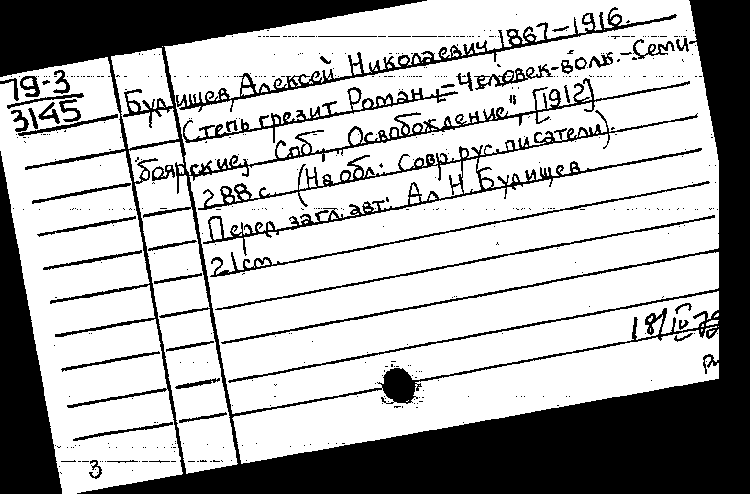 79-3
3145
Будищев, Алексей Николаевич, 1867-1916.
Степь грезит. Роман.=Человек-волк.-Семи-
боярские, Спб., „Освобождение", [1912]
288 с. (На обл.: Совр. рус. писатели).
Перед загл. авт: Ал Н. Будищев.
21 cm.
18/IV
3